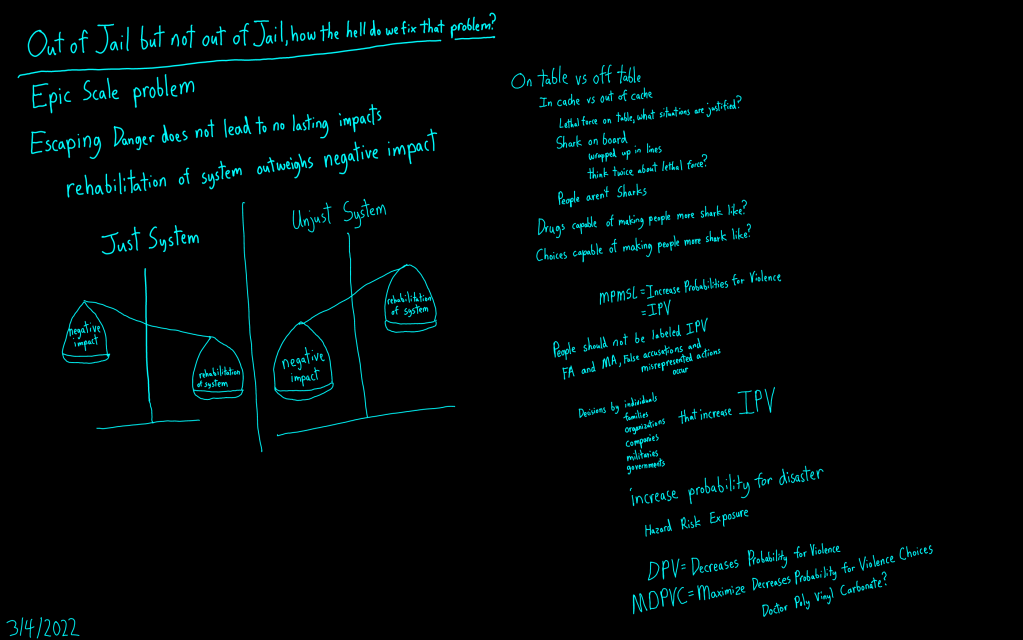 Out of Jail but not out of Jail, how the hell do we fix that problem?
Epic Scale problem
Escaping Danger does not lead to no lasting impacts
rehabilitation of system outweighs negative impact
Just System
negative
impact
rehabilitation
of system
Unjust System
negative
impact
rehabilitation
of system
On table vs off table
In cache vs out of cache
Lethal force on table, what situations are justified?
Shark on board
wrapped up in lines
think twice about lethal force?
People aren't Sharks
Drugs capable of making people more shark like?
Choices capable of making people more shark like?
MPMSL = Increase Probabilities for Violence
= IPV
People should not be labeled IPV
FA and MA, False accusations and
misrepresented actions
occur
Decisions by individuals
families
organizations
companies
militaries
governments
that increase IPV
increase probability for disaster
Hazard Risk Exposure
DPV = Decreases Probability for Violence
MDPVC = Maximize Decreases Probability for Violence Choices
Doctor Poly Vinyl Carbonate?
3/4/2022